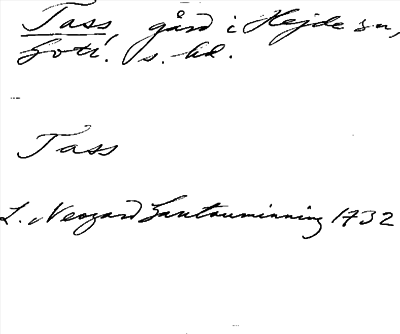 Tass, gård i Hejde sn,
Gotl. s. hd.
Tass
L. Neogard Gautauminning 1732